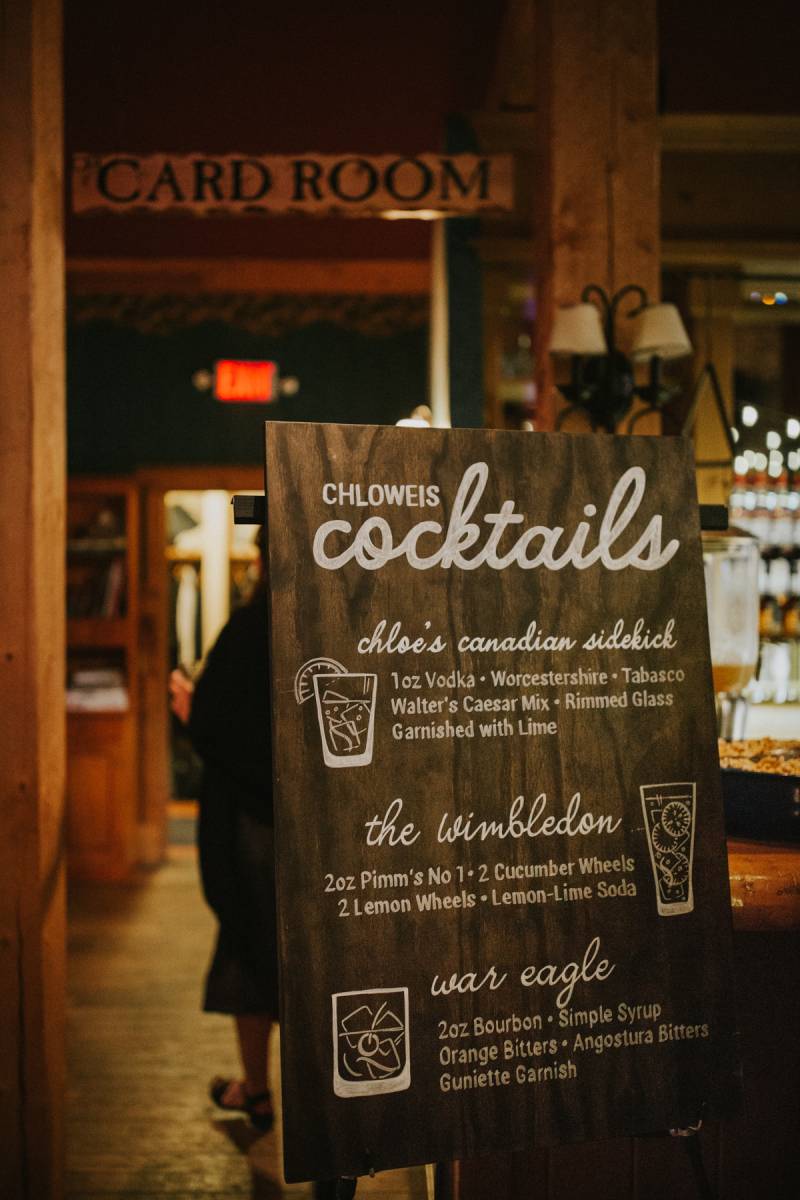 CARD ROOM
EXIT
CHLOWEIS
cocktails
chloe's canadian sidekick
1oz Vodka • Worcestershire • Tabasco
Walter's Caesar Mix • Rimmed Glass
Garnished with Lime
the wimbledon
2oz Pimm's No 1 • 2 Cucumber Wheels
2 Lemon Wheels • Lemon-Lime Soda
war eagle
2oz Bourbon • Simple Syrup
Orange Bitters • Angostura Bitters
Guniette Garnish